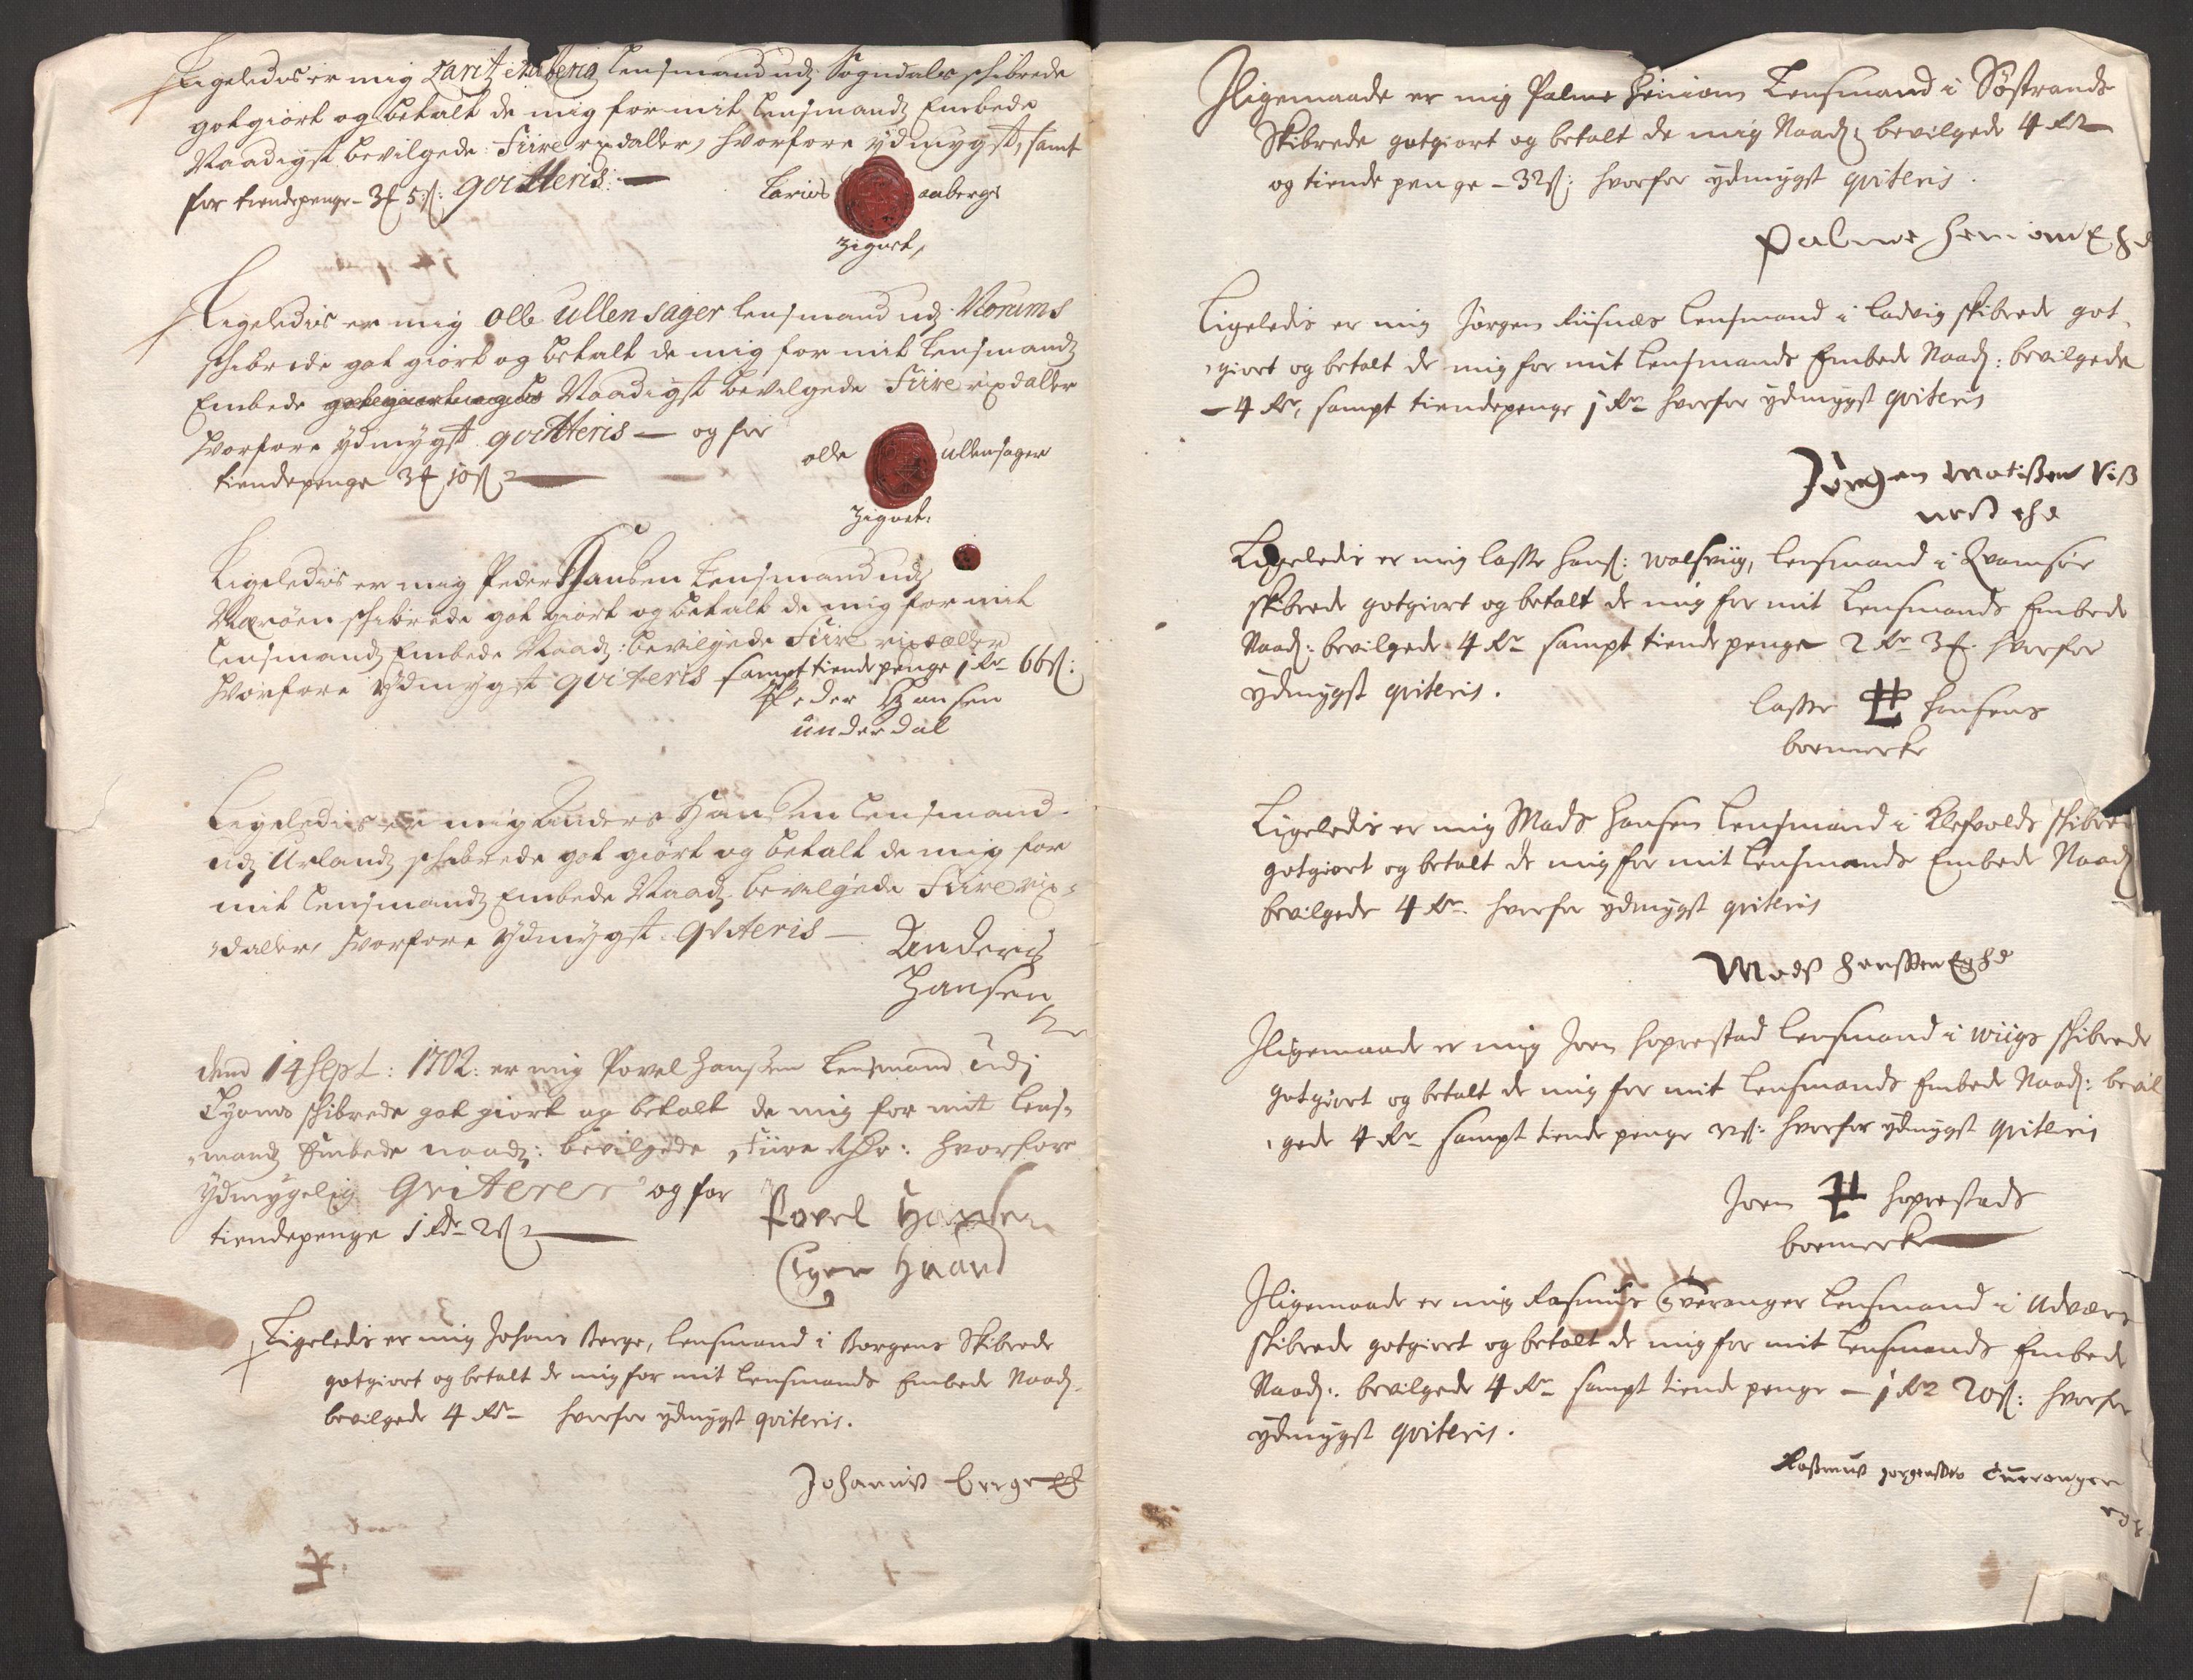 Ligeledis er mig Laritz Aaberg Lensmand udj Sogndals schibrede
gotgiort og betalt de mig for mit Lensmandz Embede
Naadigst bevilgede fiire rixdaller, hvorfore ydmygst, samt
for tiendepenge - 3 5 ß: qvitteris: —
Larids aabergs
zignet,
Ligeledis er mig olle ullensager lensmand udj Norums
schibrede got giort og betalt de mig for mit Lensmandz
Embede Naadigst bevilgede fiire rixdaller
hvorfore ydmygst qvitteris — og for
tiendepenge 3 10 ß
olle ullensager
zignet:
Ligeledis er mig Peder Hansen Lensmand udj
Nærøen schibrede got giort og betalt de mig for mit
Lensmandz Embede Naadz: bevilgede fiire rixdaller
hvorfore ydmygst qviteris sampt tiende penge 1 Rdr 66 ß:
Peder Hansen
underdal
Ligeledis er mig Anders Hansen Lensmand
udj Urlandz schibrede got giort og betalt de mig for
mit Lensmandz Embede Naadz bevilgede fiire rix-
daller, hvorfore ydmygst qviteris —
Anders
Hansen
dend 14 Sept: 1702: er mig Povel Hansen Lensmand udj
Lyams schibrede got giort og betalt de mig for mit Lens-
mandz Embede naadz: bevilgede fiire Rdr: hvorfore
ydmygelig qviterer og for
tiendepenge 1 Rdr 2 ß
Povel Hansen
Egen Haand
Ligeledis er mig Johans Berge, Lensmand i Borgens Skibrede
gotgiort og betalt de mig for mit Lensmands Embede Naadz.
bevilgede 4 Rdr - hvorfor ydmygst qviteris.
Johanis Berge
Iligemaade er mig Palme Heniom Lensmand i Søstrands
Skibrede gotgiort og betalt de mig Naadz: bevilgede 4 Rdr
og tiende penge - 32 ß: hvorfor ydmygst qviteris.
Palme Heniom
Ligeledis er mig Jørgen Riisnæs Lensmand i Ladvig skibrede got-
giort og betalt de mig for mit Lensmands Embede Naadz: bevilgede
- 4 Rdr, sampt tiendepenge 1 Rdr hvorfor ydmygst qviteris
Jørgen Matißen Riß
neß ehd
Ligeledis er mig Lasse Hans: Wolsviig, Lensmand i Qvamsøe
skibrede gotgiort og betalt de mig for mit Lensmands Embede
Naadz: bevilgede 4 Rdr sampt tiende penge 2 Rdr 3 hvorfor
ydmygst qviteris.
Lasse Hansens
boemerke
Ligeledis er mig Mads Hansen Lensmand i Klefvolds schibrede
gotgiort og betalt de mig for mit Lensmands Embede Naadz
bevilgede 4 Rdr. hvorfor ydmygst qviteris
Madß Hanssen
Iligemaade er mig Joen Hoprestad Lensmand i Wiigs schibrede
gotgiort og betalt de mig for mit Lensmands Embede Naadz: bevil
gede 4 Rdr sampt tiende penge ß: hvorfor ydmygst qviteris
Joen Hoprestads
boemerke
Iligemaade er mig Rasmus Qveranger Lensmand i Udvær
skibrede gotgiort og betalt de mig for mit Lensmands Embede
Naadz: bevilgede 4 Rdr sampt tiende penge - 1 Rdr 20 ß: hvorfor
ydmygst qviteris.
Raßmus Jørgensen Queranger